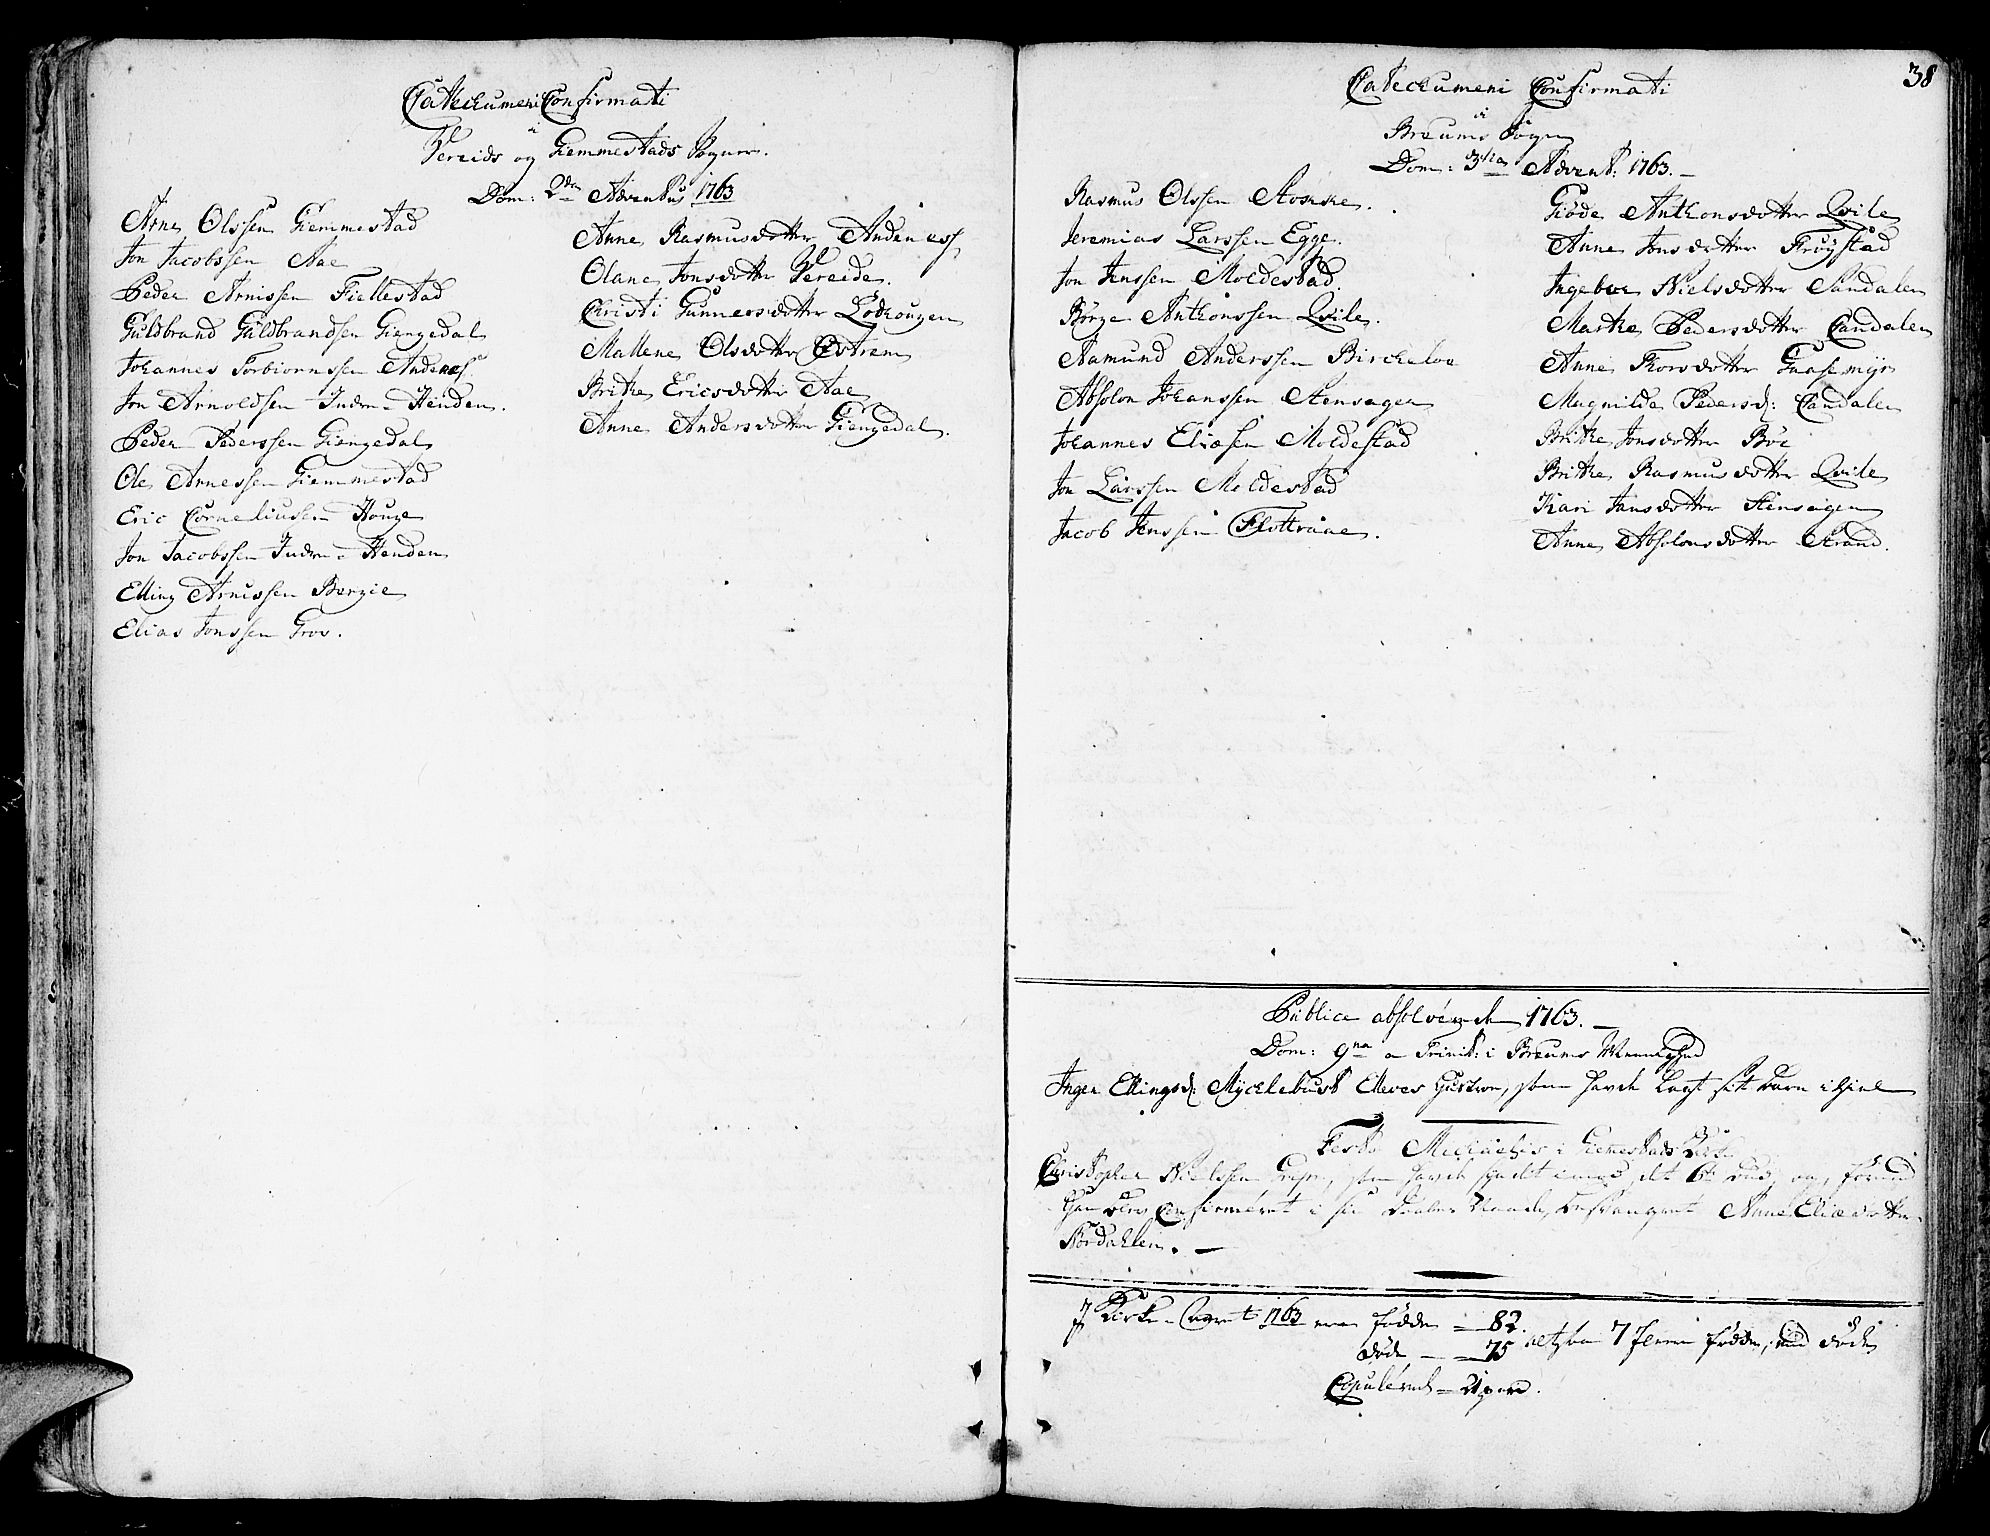 Catechumeni Confirmati
i
Vereids og Giemmestads Sogner.
Dom: 2da Adventus 1763
Arne Olssen Giemmestad
Jon Jacobssen Aae
Peder Arnissen Fiellestad
Guldbrand Guldbrandsen Giengedal
Johannes Torbiørnssen Andenæs
Jon Arnoldsen Indre-Henden.
Peder Pederssen Giengedal
Ole Arnessen Giemmestad
Eric Corneliussen Houge
Jon Jacobssen Indre-Henden
Elling Arnessen Bergie
Elias Jonssen Grov.
Anne Rasmusdotter Andenæss
Olane Jonsdotter Vereide.
Christi Gunnersdotter Lødhougen
Mallene Olsdotter Østrem
Brithe Ericsdotter Aae
Anne Andersdotter Giengedal.
38
Catechumeni Confirmati
i
Breums Sogn
Dom: 3tia Advent: 1763.
Rasmus Olssen Aoske.
Jeremias Larssen Egge.
Jon Jenssen Moldestad.
Børge Anthonssen Qvile.
Aamund Anderssen Birckeloe
Absolon Johanssen Stensager
Johannes Eliæsen Moldestad
Jon Larssen Moldestad
Jacob Jenssen Flottraae.
Giøde Anthonsdotter Qvile
Anne Jonsdotter Frøystad
Ingeboe Nielsdotter Sandalen
Marthe Pedersdotter Sandalen
Anne Thorsdotter Gaasemyr
Magnilde Pedersd: Sandalen
Brithe Jonsdotter Bøe
Brithe Rasmusdotter Qvile
Kari Jansdotter Stensagen
Anne Absolonsdotter Strand.
Publice absolverede 1763.
Dom: 9na a Trinit: i Breums Menighed
Inger Ellingsd. Myclebust Elleves Hustroe, som havde lagt sit Barn ihiel
Festo Michaelis i Giemestads Kirke
Christopher Nielssen, som havde syndet imod det 6te Bud, og, førend
Han blev Confirmeret i sin Daabes Naade, besvangret Anne Eliædotter
Nordahlen.
I Kirke-Aaret 1763 ere fødde = 82.
døde = 75 altsaa 7 flere fødde, end døde
Copulerede = 21 par.